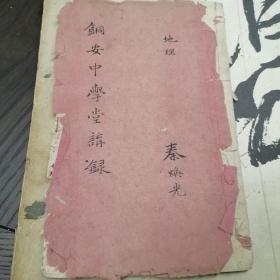 地理
銅安中學堂講錄
秦燦光